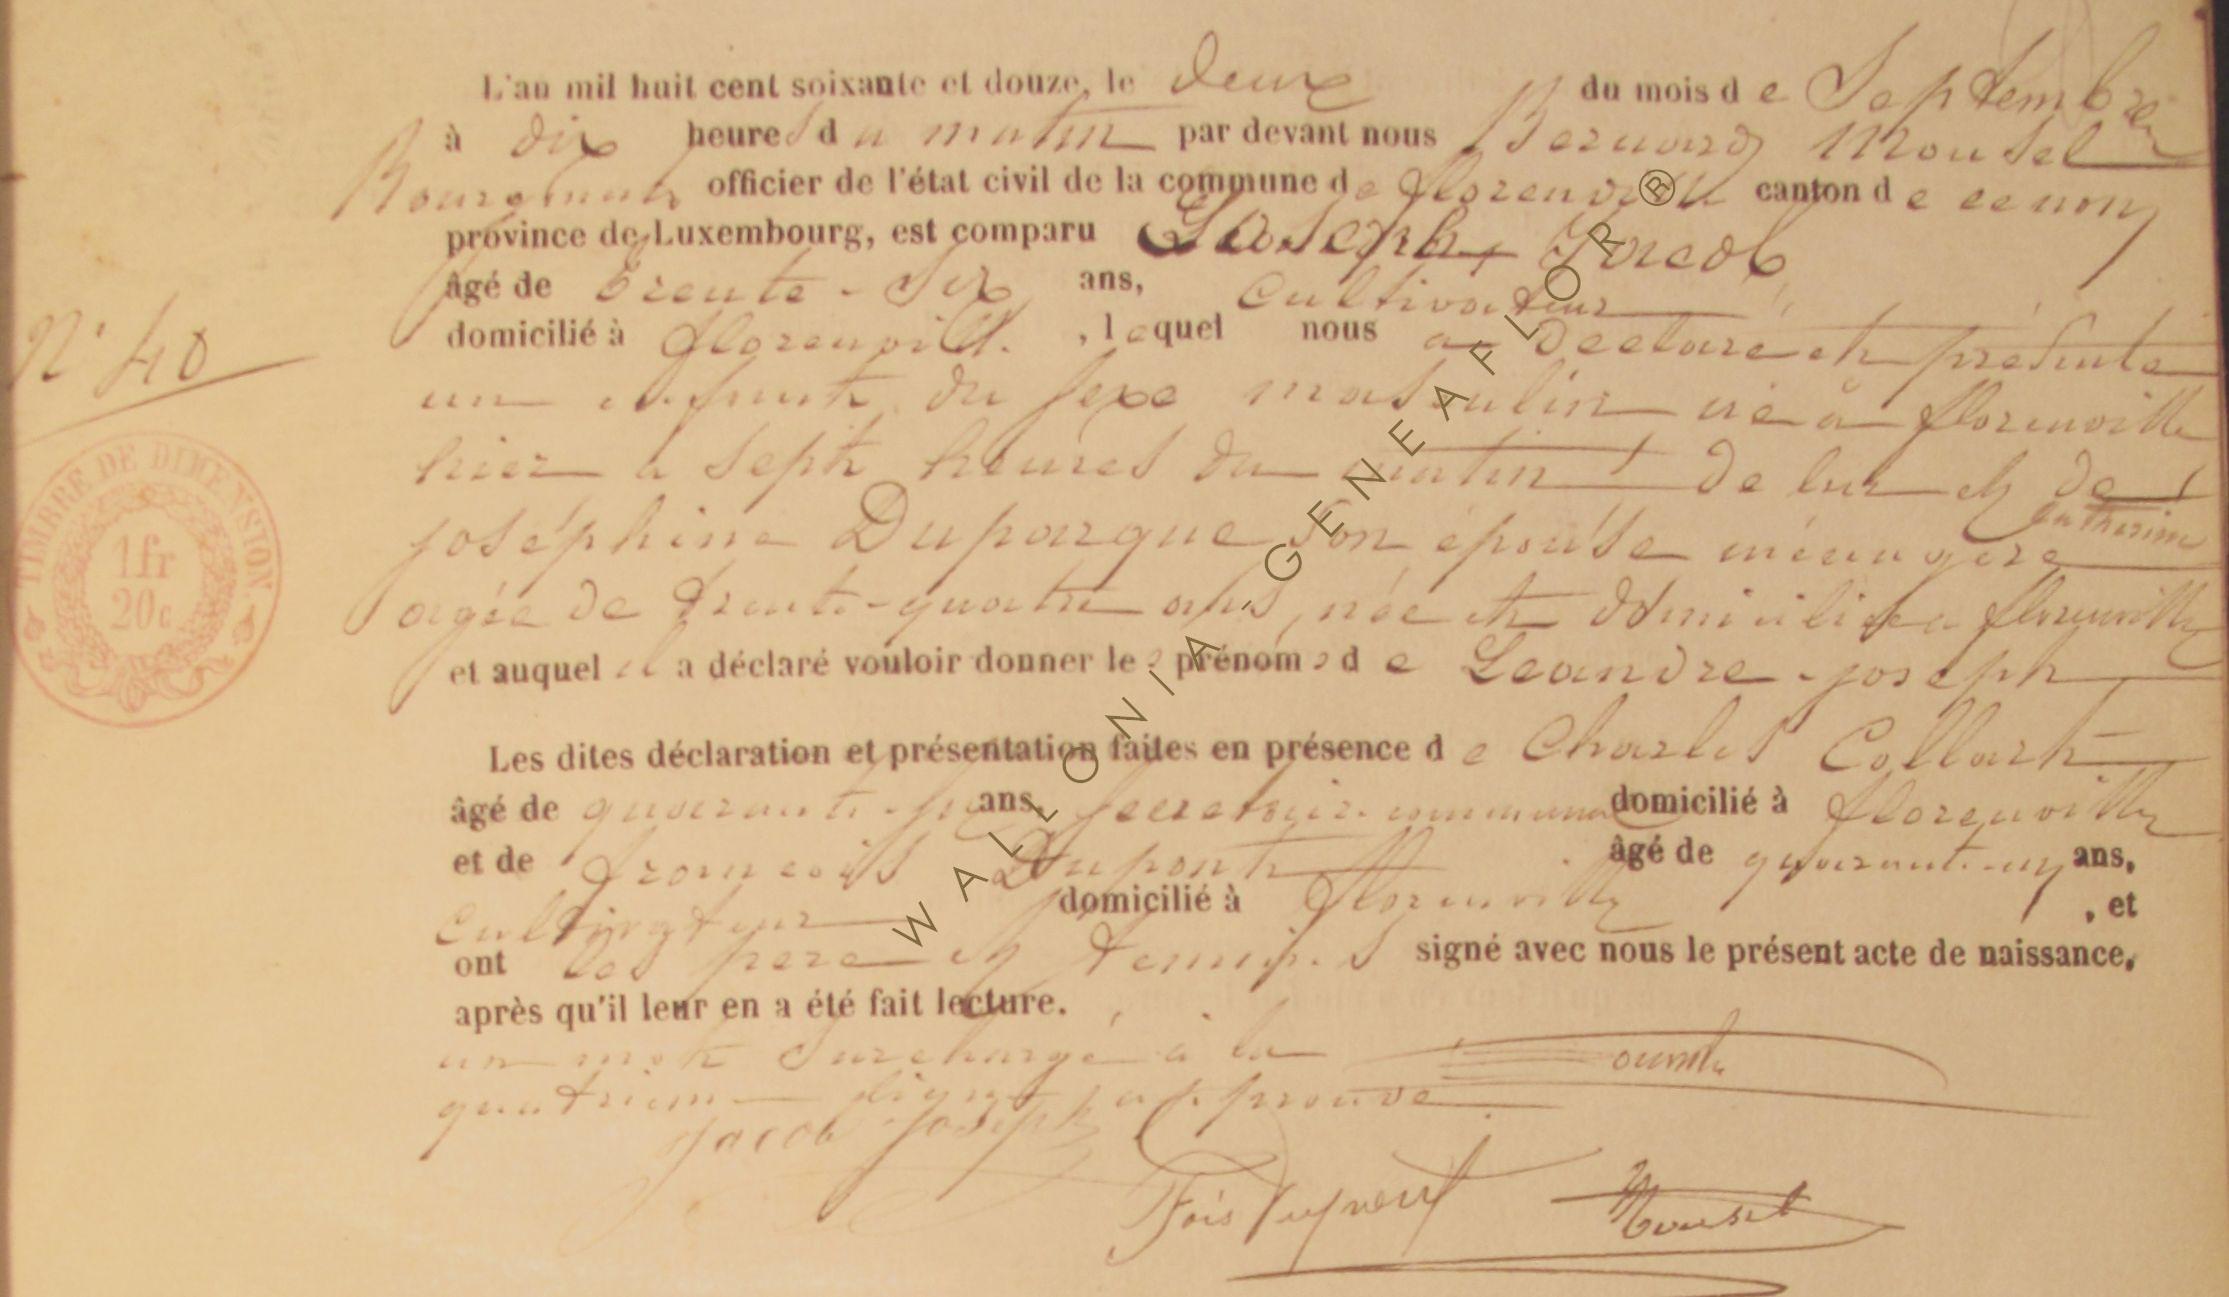 L'an mil huit cent soixante et douze, le deux du mois de Septembre
à dix heures du matin par devant nous Bernard Mousel
Bourgmestre officier de l'état civil de la commune de florenville canton de ce nom
province de Luxembourg, est comparu Joseph Jacob
âgé de trente-six ans, cultivateur
domicilié à florenville, lequel nous a declaré et présenté
N° 40
un enfant du sexe masculin né à florenville
hier à sept heures du matin de lui et de
TIMBRE DE DIMENSION.
1fr
20c
catherine
joséphine Duparque son épouse ménagère
agée de trente-quatre ans, née et domiciliée a florenville
et auquel il a déclaré vouloir donner les prénoms de Leandre-joseph
Les dites déclaration et présentation faites en présence de Charles Collart
âgé de quarante-six ans, secretaire communal domicilié à florenville
et de françois Dupont âgé de quarante-un ans,
cultivateur domicilié à florenville, et
ont les père et temoins signé avec nous le présent acte de naissance,
après qu'il leur en a été fait lecture.
un mot surchargé à la
quatrieme ligne approuvé
Jacob joseph
Fois Dupont Mousel
WALLONIA GENEAFLOR®